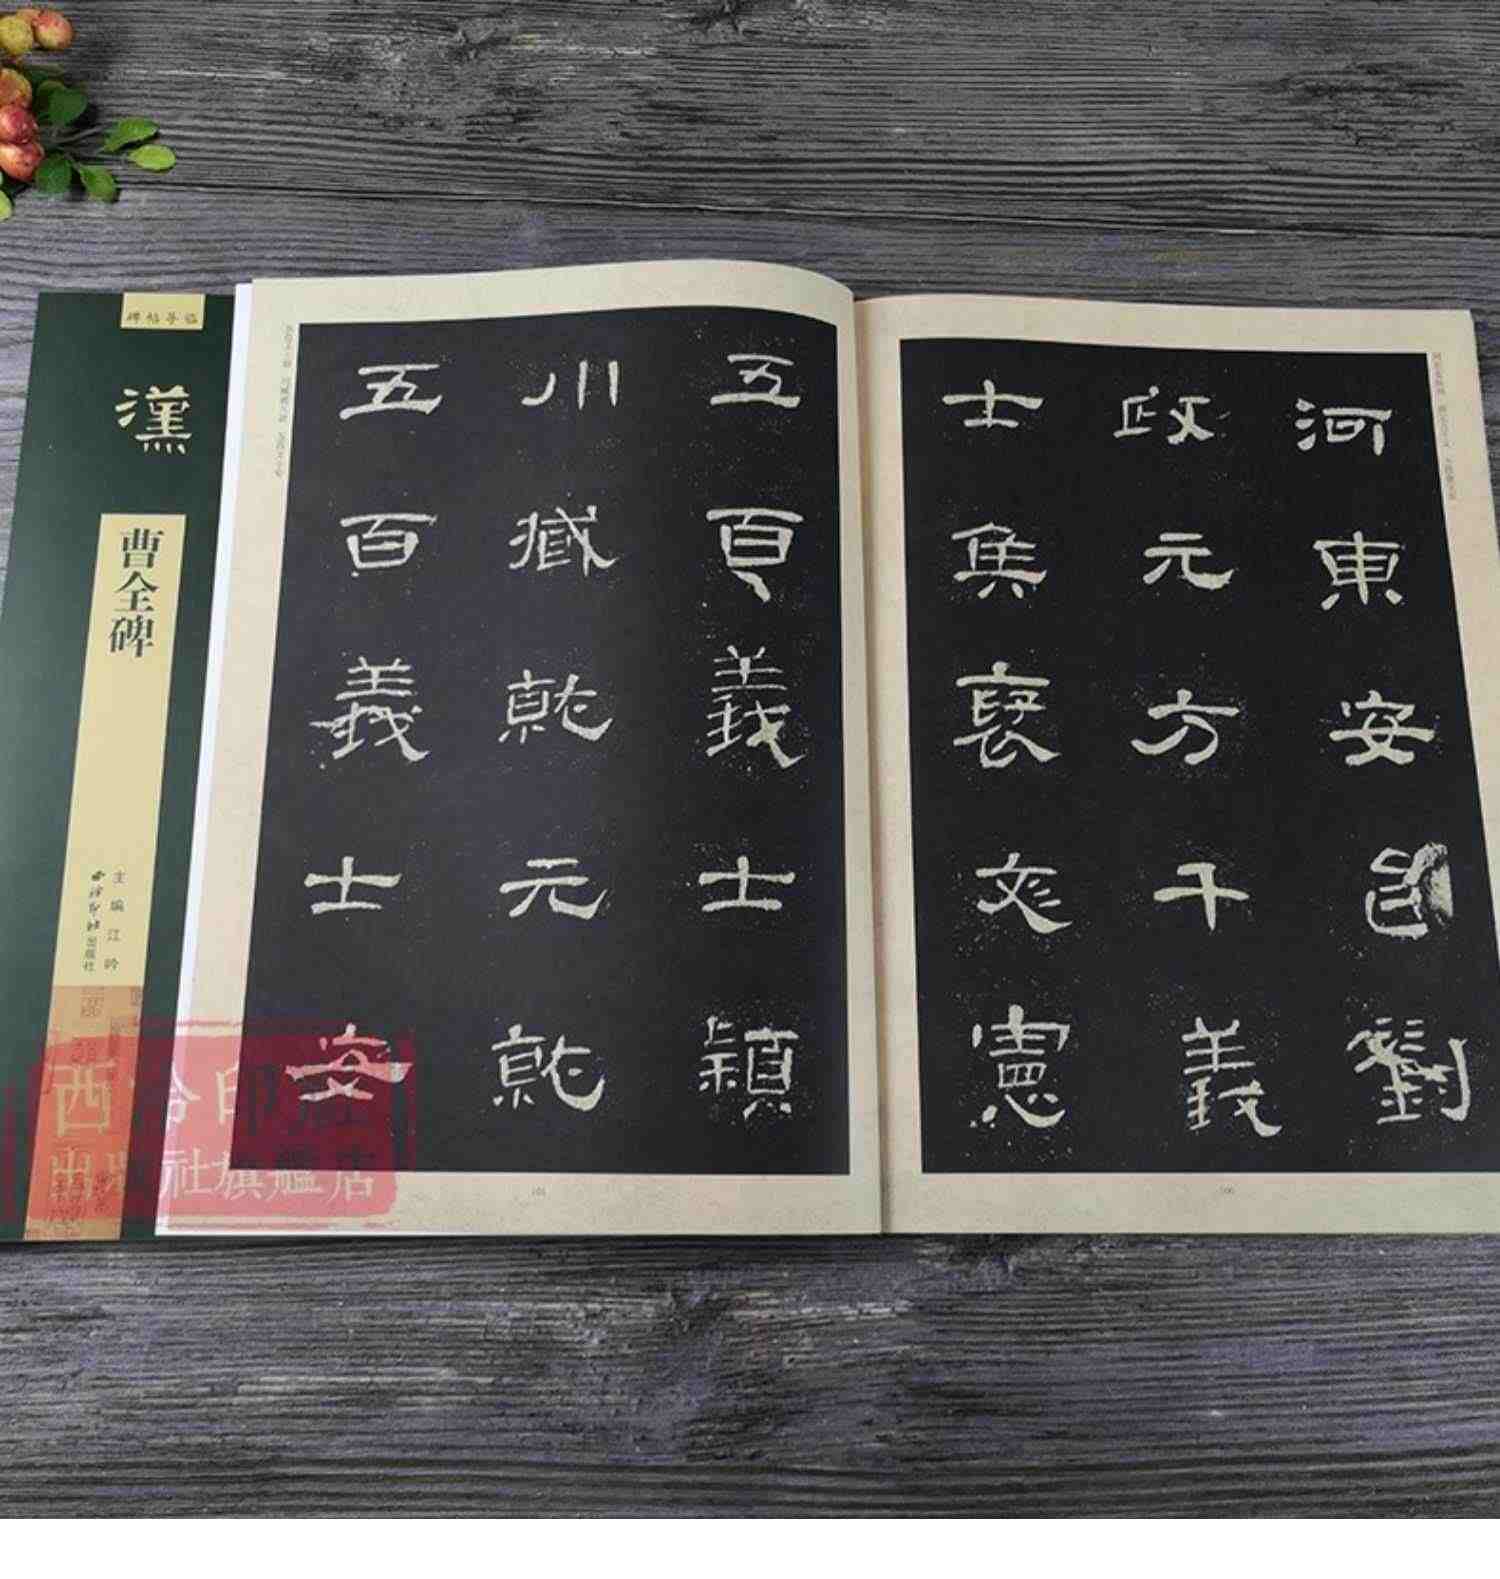 碑帖导临
漢
曹全碑
主编江吟
西泠印社出版社
河東安邑劉
政元方千義
士侯褒文憲
五百義士潁
川臧就元就
五百義士安
101
100
西泠印社
出版社旗艦店